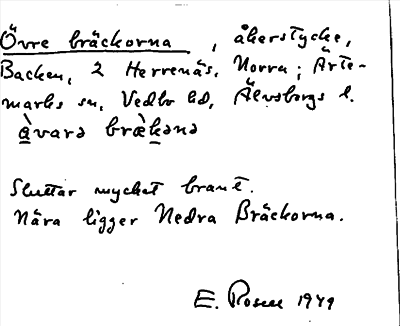 Övre bräckorna, åkerstycke,
Backen, 2 Herrenäs, Norra; Ärte-
marks sn, Vedbo hd, Älvsborgs l.
àvarə bræ̀kənə
Sluttar mycket brant.
Nära ligger Nedra Bräckorna.
E. Rosen 1949